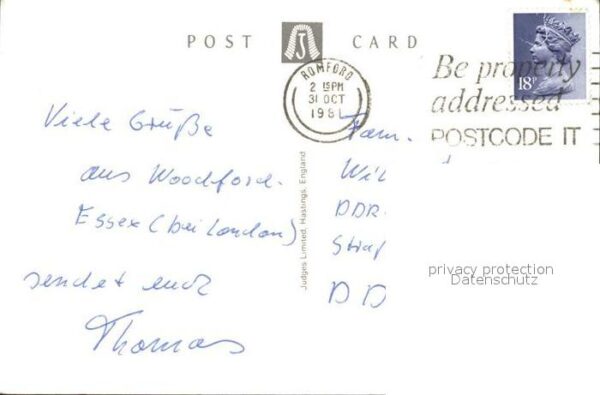 POST CARD
ROMFORD
2 15PM
31 OCT
1981
18P
Be properly
addressed
POSTCODE IT
Viele Grüße
aus Woodford.
Essex (bei London)
sendet euch
Thomas
Judges Limited, Hastings, England
Fam.
DDR.
DD
privacy protection
Datenschutz